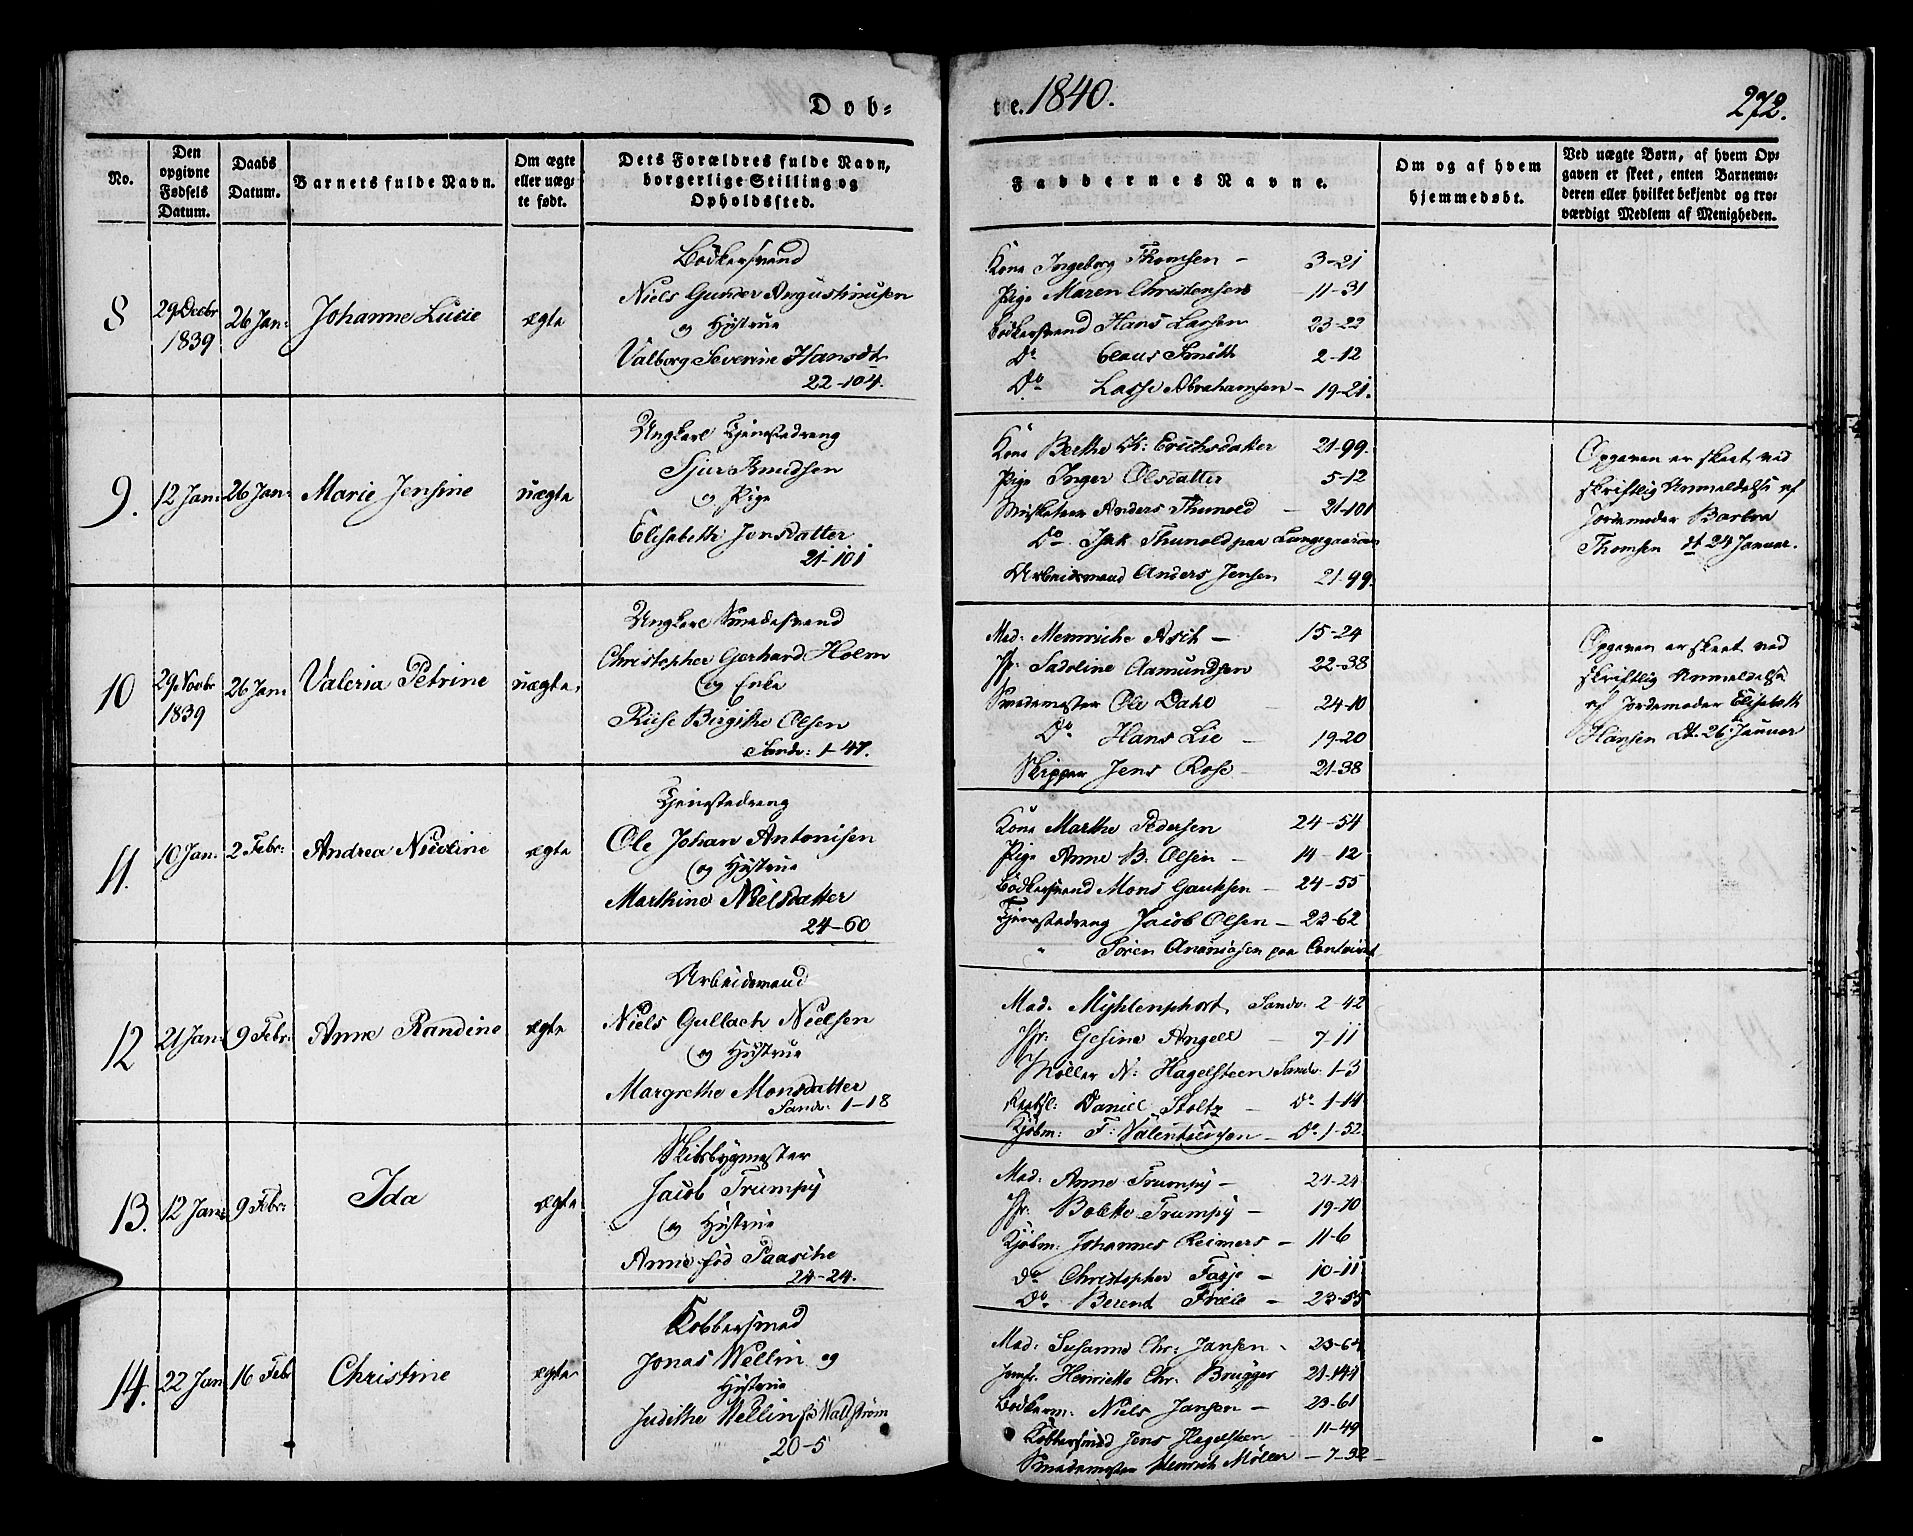 Dob-
te. 1840.
272.
No.
Den opgivne Fødsels Datum.
Daabs Datum.
Barnets fulde Navn.
Om ægte eller uægte født.
Dets Forældres fulde Navn, borgerlige Stilling og Opholdssted.
Faddernes Navne.
Om og af hvem hjemmedøbt.
Ved uægte Børn, af hvem Opgaven er skeet, enten Barnemoderen eller hvilket bekjendt og troværdigt Medlem af Menigheden.
8
29 Decbr 1839
26 Jan:
Johanne Lucie
ægte
Bödkersvend
Niels Gunder Augustinusen
og Hustrue
Valborg Severine Hansdt
22-104.
Kone Ingeborg Thomsen - 3-21
Pige Maren Christensen - 11-31
Bödkersvend Hans Larsen 23-22
Do Claus Smith 2-12
Do Lasse Abrahamsen - 19-21.
9.
12 Jan:
26 Jan:
Marie Jensine
uægte
Ungkarl Tjenestedreng
Sjur Knudsen
og Pige
Elisabeth Jonsdatter
21-101
Kone Berthe K: Erichsdatter 21-99.
Pige Inger Olsdatter 5-12
Musketeer Anders Thunold - 21-101
Do Isak Thunold paa Lungegaarden
Arbeidsmand Anders Jensen 21-99.
Opgaven er skeet ved
skriftlig Anmeldelse af
Jordemoder Barbra
Thomsen dt 24 Januar.
10
29 Novbr 1839
26 Jan
Valeria Petrine
uægte.
Ungkarl Smedesvend
Christopher Gerhard Holm
og Enke
Riise Birgithe Olsen
Sandv: 1-47.
Mad: Menriche Asch - 15-24
Jfr: Sadoline Aamundsen 22-38
Smedemester Ole Dahl 24-10
Do Hans Lie - 19-20
Skipper Jens Rose - 21-38
Opgaven er skeet ved
skriftlig Anmeldelse
af Jordemoder Elisabeth
Hansen Dt. 26 Januar
11.
10 Jan:
2 Febr:
Andrea Nicoline
ægte
Tjenestedreng
Ole Johan Antonisen
og Hustrue
Marthine Nielsdatter
24-60
Kone Marthe Pedersen 24-54
Pige Anne B: Olsen - 14-12
Bödkersvend Mons Gautesen - 24-55
Tjenestedreng Jacob Olsen - 23-62
" Sören Ananiasen paa
12
21 Jan:
9 Febr:
Anne Randine
ægte
Arbeidsmand
Niels Gullach Nielsen
og Hustrue
Margrethe Monsdatter
Sandv: 1-18
Mad: Myhlenphort Sandv: 2-42
Jfr: Gesine Angell - 7-11
Möller N: Hagelsteen Sandv: 1-3
Daniel Stoltz - Do 1-14
Kjöbm: F: Valentinsen - Do. 1-52.
13.
12 Jan:
9 Febr:
Ida
ægte
Skibsbygmester
Jacob Trumpy
og Hustrue
Anne fød Paasche
24-24.
Mad: Anne Trumpy - 24-24
Jfr: Bolette Trumpy - 19-10
Kjöbm: Johannes Reimers - 11-6
Do Christopher Fasje - 10-11
Do. Berend Friele - 23-55
14.
22 Jan
16 Febr
Christine
ægte
Kobbersmed
Jonas Wellin og
Hustrue
Judithe Wellin fd Wallström
20-5
Mad: Susanne Chr: Jansen - 23-64
Jomfr: Henriette Chr: Brugger 21-141
Bödkerm: Niels Jansen - 23-61
Kobbersmed Jens Hagelsteen - 11-49
Smedemester Henrich Möller - 7-32 -